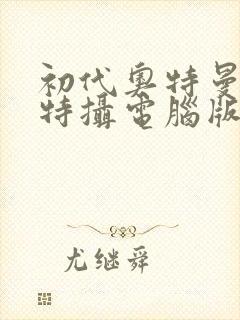 初代奥特曼
特攝電腦版
尤继舜